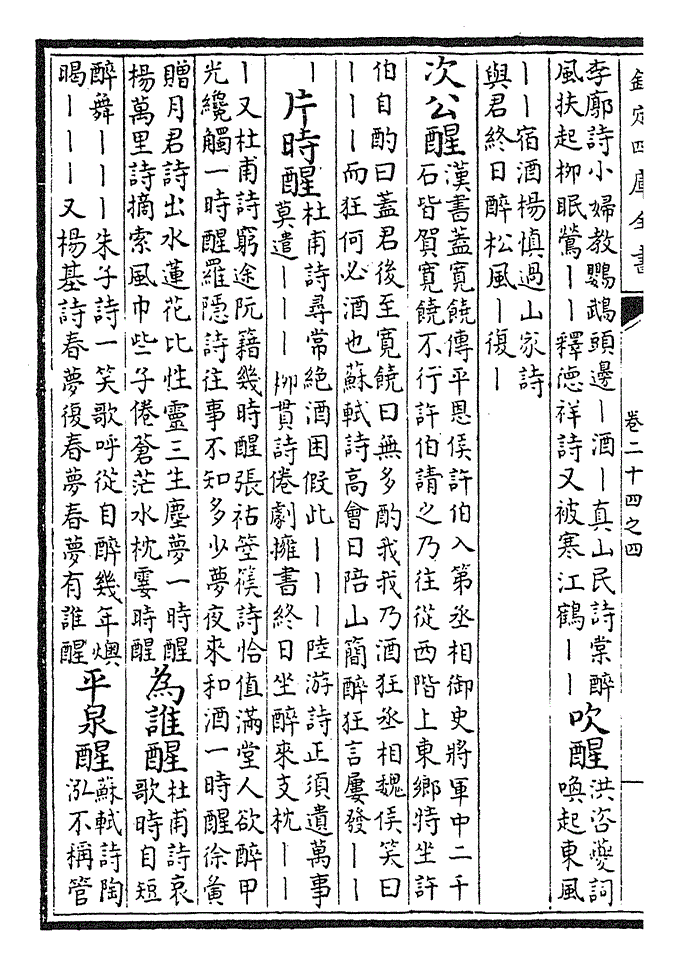 欽定四庫全書
卷二十四之四
李廓詩小婦教鸚鵡頭邊｜酒｜真山民詩棠醉
風扶起栁眠鶯｜｜釋德祥詩又被寒江鶴｜｜
吹醒
洪咨夔詞
喚起東風
｜｜宿酒楊慎過山家詩
與君終日醉松風｜復｜
次公醒
漢書蓋寛饒傳平恩侯許伯入第丞相御史將軍中二千
石皆賀寛饒不行許伯請之乃往從西階上東鄉特坐許
伯自酌曰蓋君後至寛饒曰無多酌我我乃酒狂丞相魏侯笑曰
｜｜｜而狂何必酒也蘇軾詩高會日陪山簡醉狂言屢發｜｜
｜
片時醒
杜甫詩尋常絶酒困假此｜｜｜陸游詩正須遺萬事
莫遣｜｜｜栁貫詩倦劇擁書終日坐醉來支枕｜｜
｜又杜甫詩窮途阮籍幾時醒張祜箜篌詩恰值滿堂人欲醉甲
光纔觸一時醒羅隱詩往事不知多少夢夜來和酒一時醒徐夤
贈月君詩出水蓮花比性靈三生塵夢一時醒
楊萬里詩摘索風巾些子倦蒼茫水枕霎時醒
為誰醒
杜甫詩哀
歌時自短
醉舞｜｜｜朱子詩一笑歌呼從自醉幾年燠
暍｜｜｜又楊基詩春夢復春夢春夢有誰醒
平泉醒
蘇軾詩陶
泓不稱管